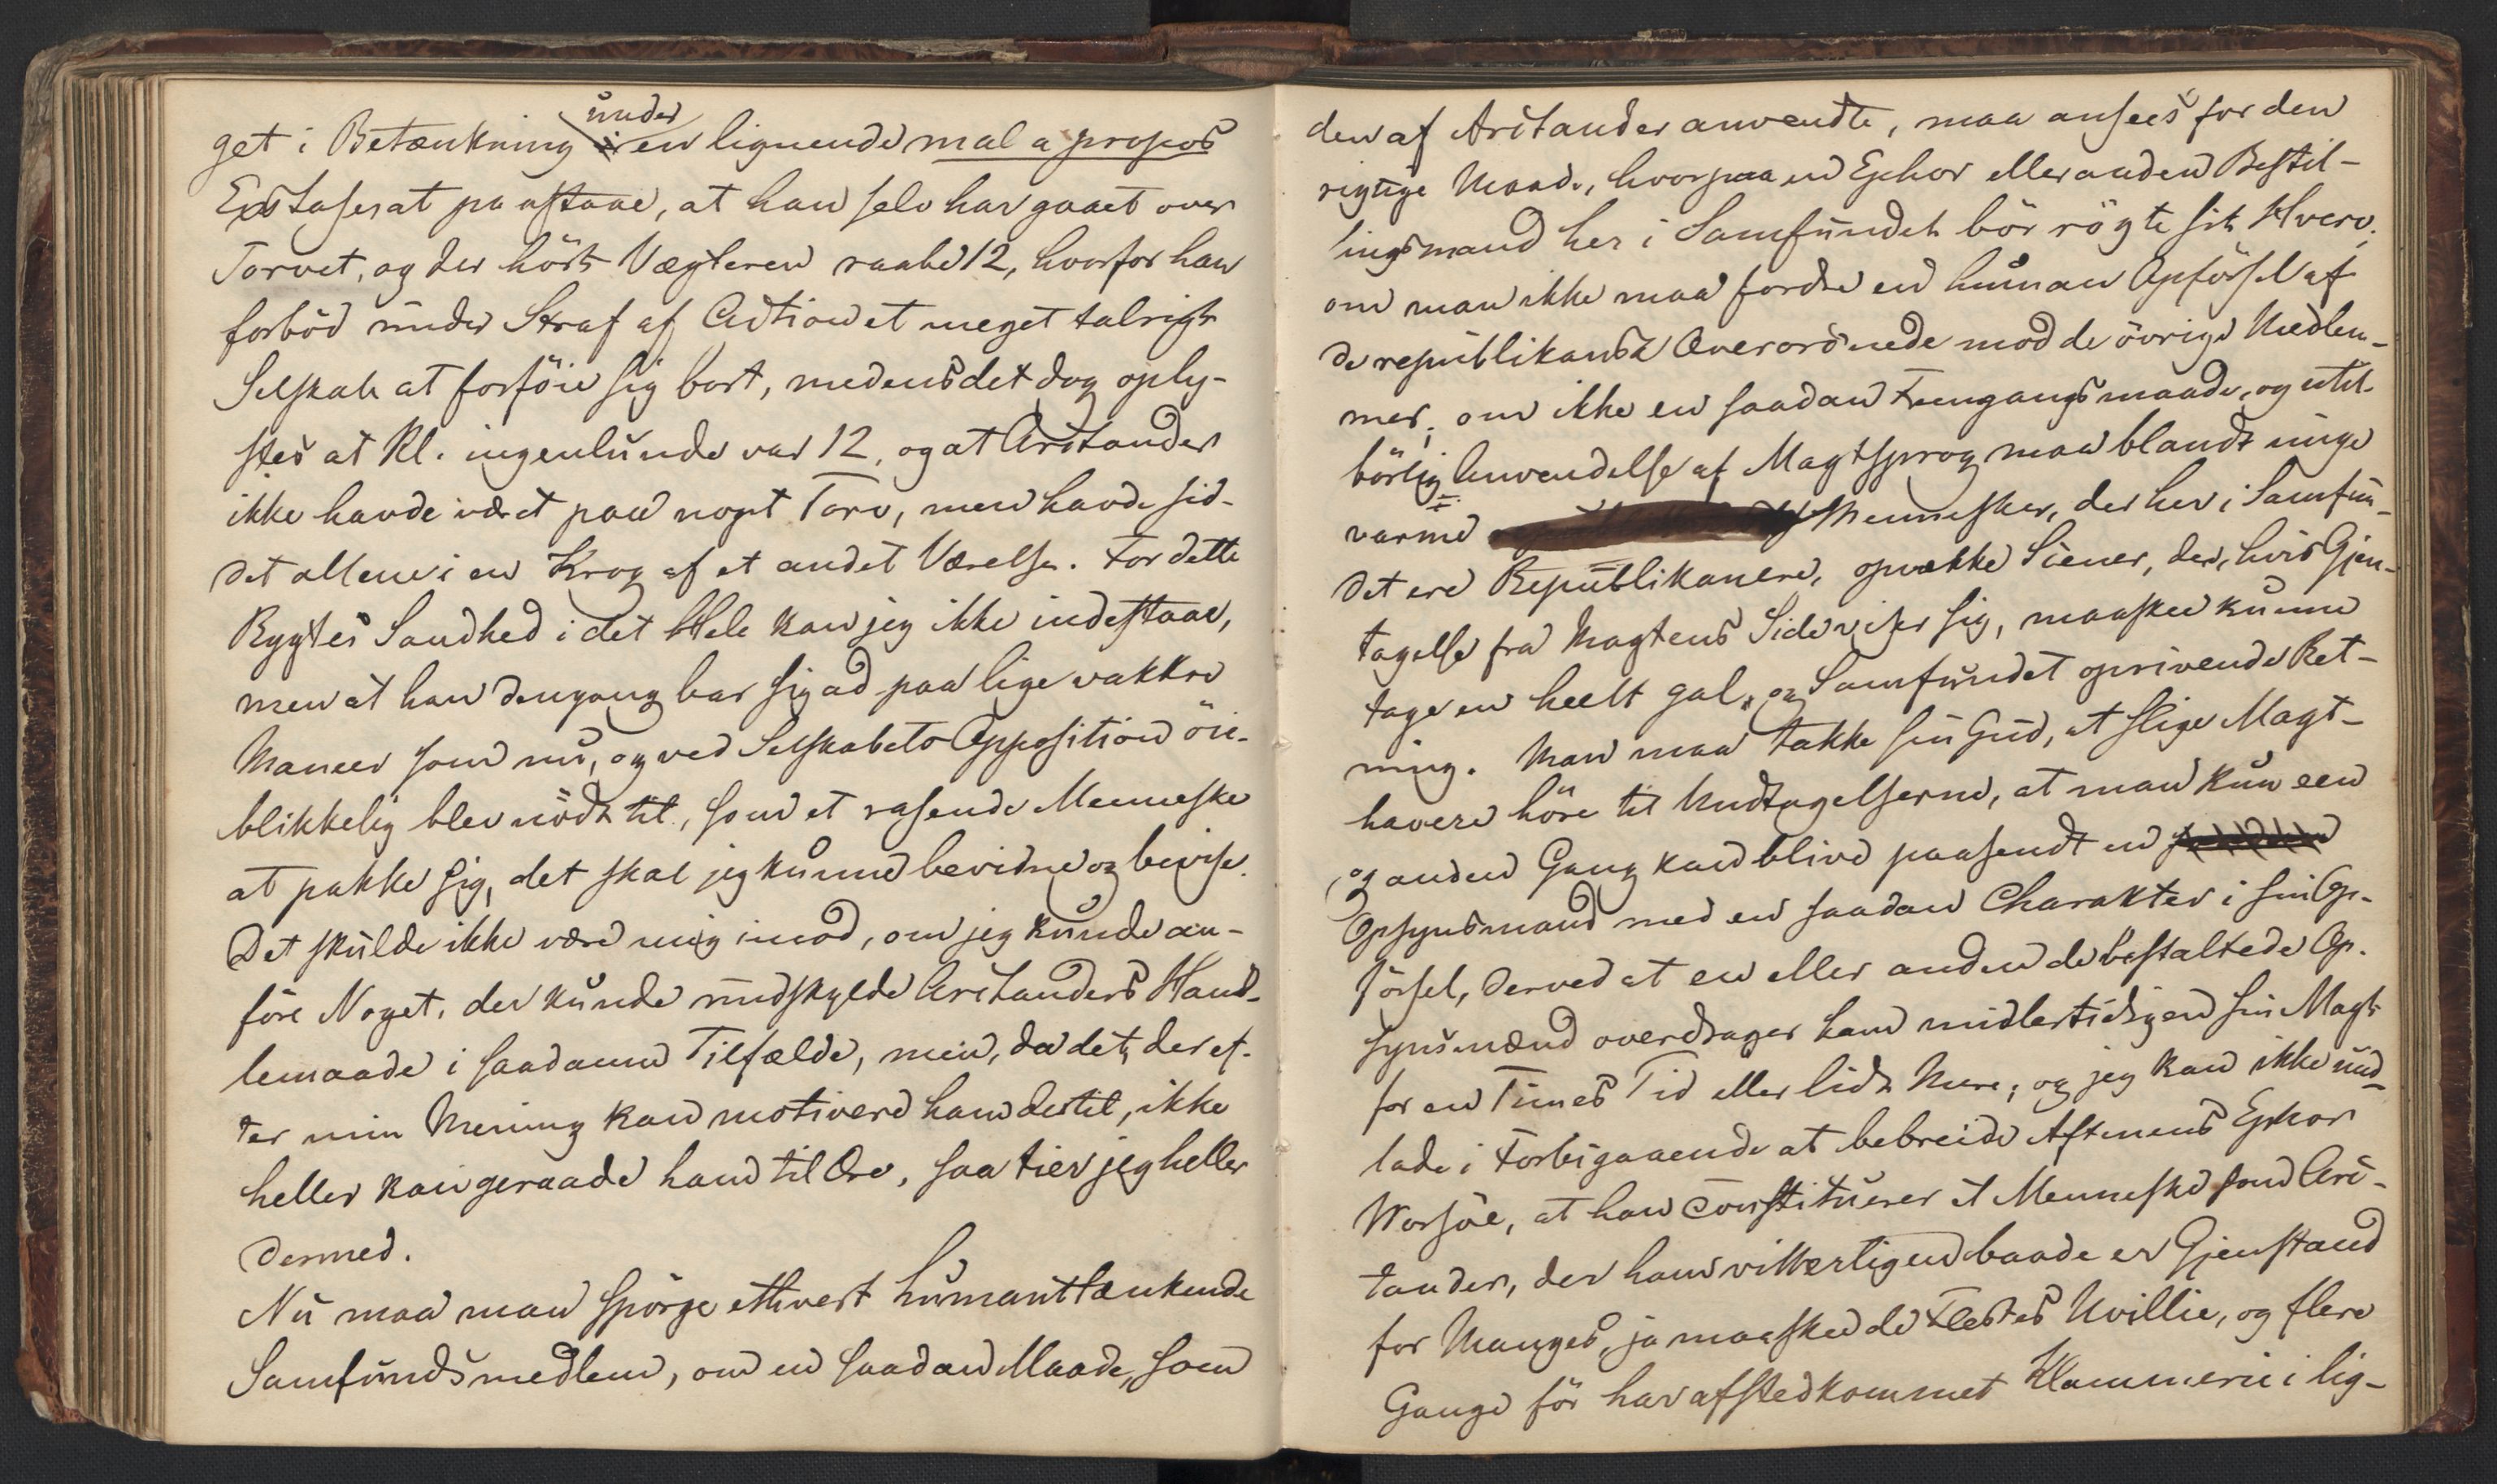 under
get i Betænkning i en lignende mal a propos
Exstaser at paastaae, at han selv har gaaet over
Torvet, og der hört Vægteren raabe 12, hvorfor han
forböd under Straf af Action et meget talrigt
Selskab at forföie sig bort, medens det dog oply-
stes at Kl. ingenlunde var 12, og at Aristander
ikke havde været paa noget Torv, men havde sid-
det allene i en Krog af et andet Værelse. For dette
Rygtes Sandhed i det Hele kan jeg ikke indestaae,
men at han dengang bar sig ad paa lige vakkre
Maneer som nu, og ved Selskabets Opposition öie-
blikkelig blev nödt til, som et rasende Menneske
at pakke sig, det skal jeg kunne bevidne og bevise.
Det skulde ikke være mig imod, om jeg kunde an-
före Noget, der kunde undskylde Aristanders Hand-
lemaade i saadanne Tilfælde, men, da det, der ef-
ter min Mening kan motivere ham dertil, ikke
heller kan geraade ham til Ære, saa tier jeg heller
dermed.
Nu maa man spörge ethvert humant tænkende
Samfundsmedlem, om en saadan Maade, som
den af Aristander anvendte, maa ansees for den
rigtige Maade, hvorpaa en Ephor eller anden Bestil-
lingsmand her i Samfundet bör rögte sit Hverv;
om man ikke maa fordre en human Opförsel af
de republikansk Overordnede mod de övrige Medlem-
mer; om ikke en saadan Fremgangsmaade, og util-
börlig Anvendelse af Magtsprog maa blandt unge
varme Mennesker, der her i Samfun-
det ere Republikanere, opvække Scener, der, hvis Gjen-
tagelse fra Magtens Side viser sig, maaskee kunne
tage en heelt gal, og Samfundet oprivende Ret-
ning. Man maa takke sin Gud, at slige Magt-
havere höre til Undtagelserne, at man kun een
og anden Gang kan blive paasendt en
Opsynsmand med en saadan Charakter i sin Op-
försel, derved at en eller anden de bestaltede Op-
synsmænd overdrager ham midlertidigen sin Magt
for en Times Tid eller lidt Mere; og jeg kan ikke und-
lade i Forbigaaende at bebreide Aftenens Ephor
Worsöe, at han constituerer et Menneske som Aris-
tander, der hans vitterligen baade er Gjenstand
for Manges, ja maaskee de Flestes Uvillie, og flere
Gange för har afstedkommet Klammerie i lig-